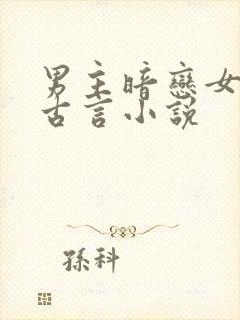 男主暗戀女
古言小說
孫科